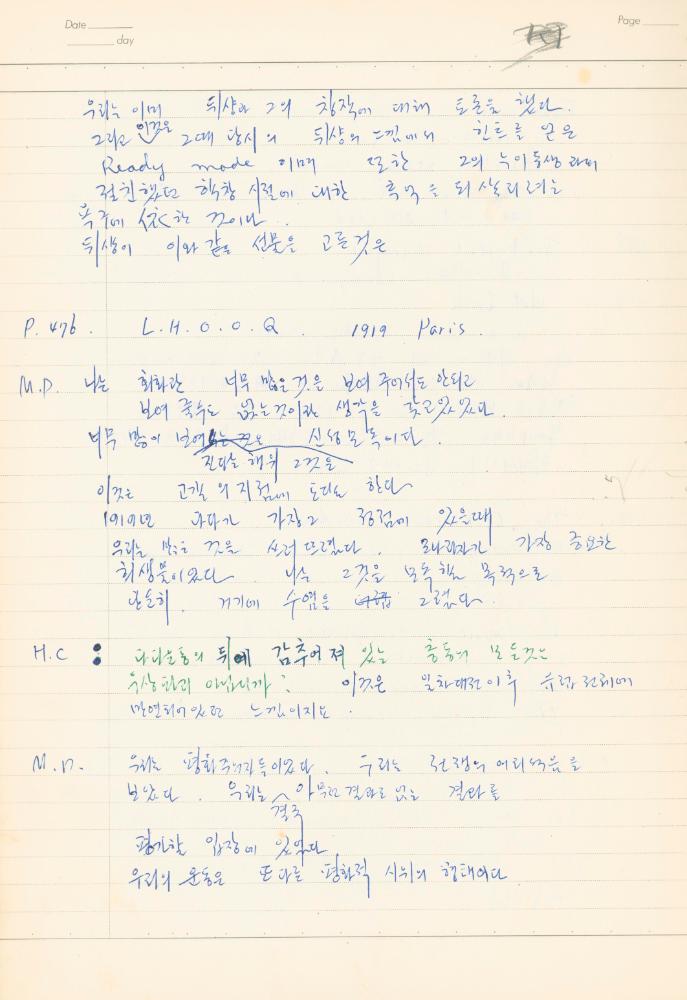 Date
day
Page
우리는 이미 뒤샹과 그의 창작에 대해 토론을 했다.
그리고 이것은 그때 당시의 뒤샹의 느낌에서 힌트를 얻은
Ready made 이며 또한 그의 누이동생과의
절친했던 학창 시절에 대한 추억을 되살리려는
욕구에 依한 것이다.
뒤샹이 이와 같은 선물을 고른것은
P. 476. L.H.O.O.Q. 1919 Paris.
M.D. 나는 회화란 너무 많은것을 보여 주어서도 안되고
보여 줄수도 없는것이란 생각을 갖고있었다.
너무 많이 보여 신성모독이다.
진다는 행위 그것은
이것은 고갈의 지점에 도다 한다
1919년 다다가 가장 정점에 있을때
우리는 많은 것을 쓰러뜨렸다. 모나리자가 가장 중요한
희생물이었다. 나는 그것을 모독할 목적으로
단순히 거기에 수염을 그렸다.
H.C : 다다운동의 뒤에 감추어져 있는 충동의 모든것은
우상타파 아닙니까? 이것은 일차대전이후 유럽전체에
만연되어있던 느낌이지요.
M.D. 우리는 평화주의자들이었다. 우리는 전쟁의 어리석음을
보았다. 우리는 아무런 결과도 없는 결과를
결국
평가할 입장에 있었다
우리의 운동은 또다른 평화적 시위의 형태였다